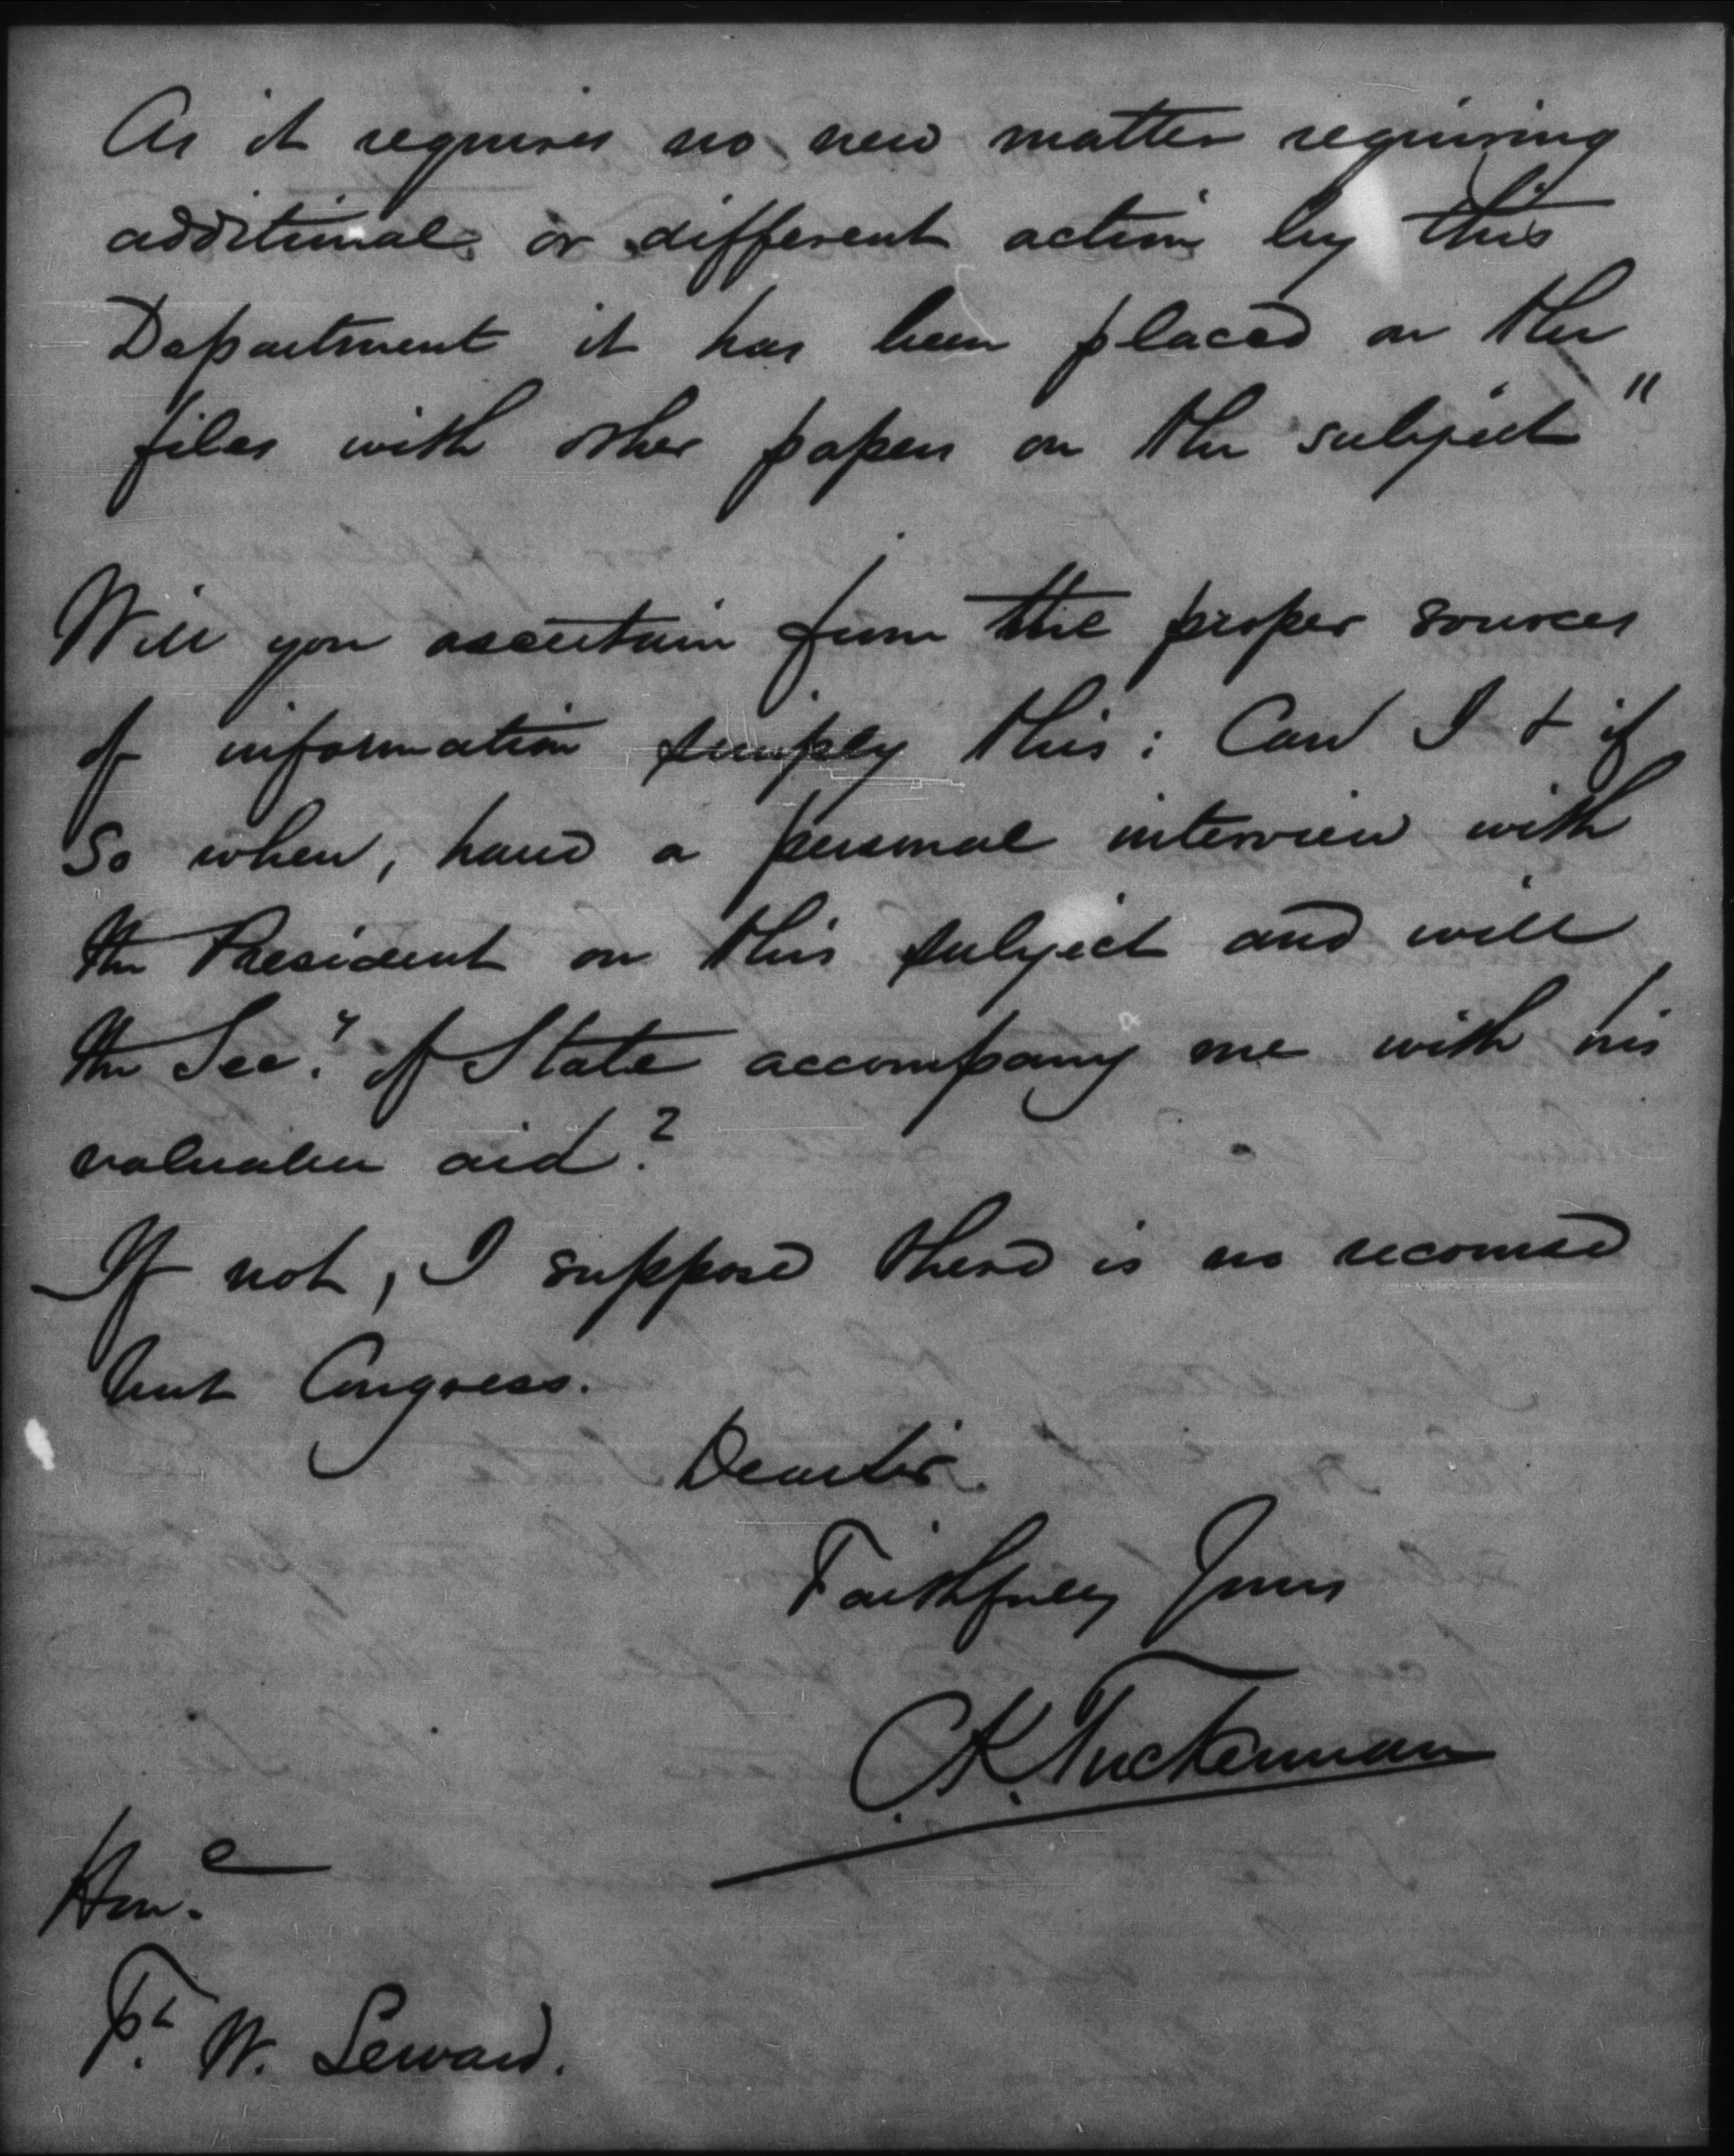 As it requires no new matter requiring
additional or different action by this
Department it has been placed on the
files with other papers on the subject"
Will you ascertain from the proper sources
of information simply this: Can I & if
so when, have a personal interview with
the President on this subject and will
the Sec.y of State accompany me with his
valuable aid?
If not, I suppose there is no recourse
but Congress.
Dear Sir
Faithfully Yours
C. K. Tuckerman
Hon.
W. Seward.